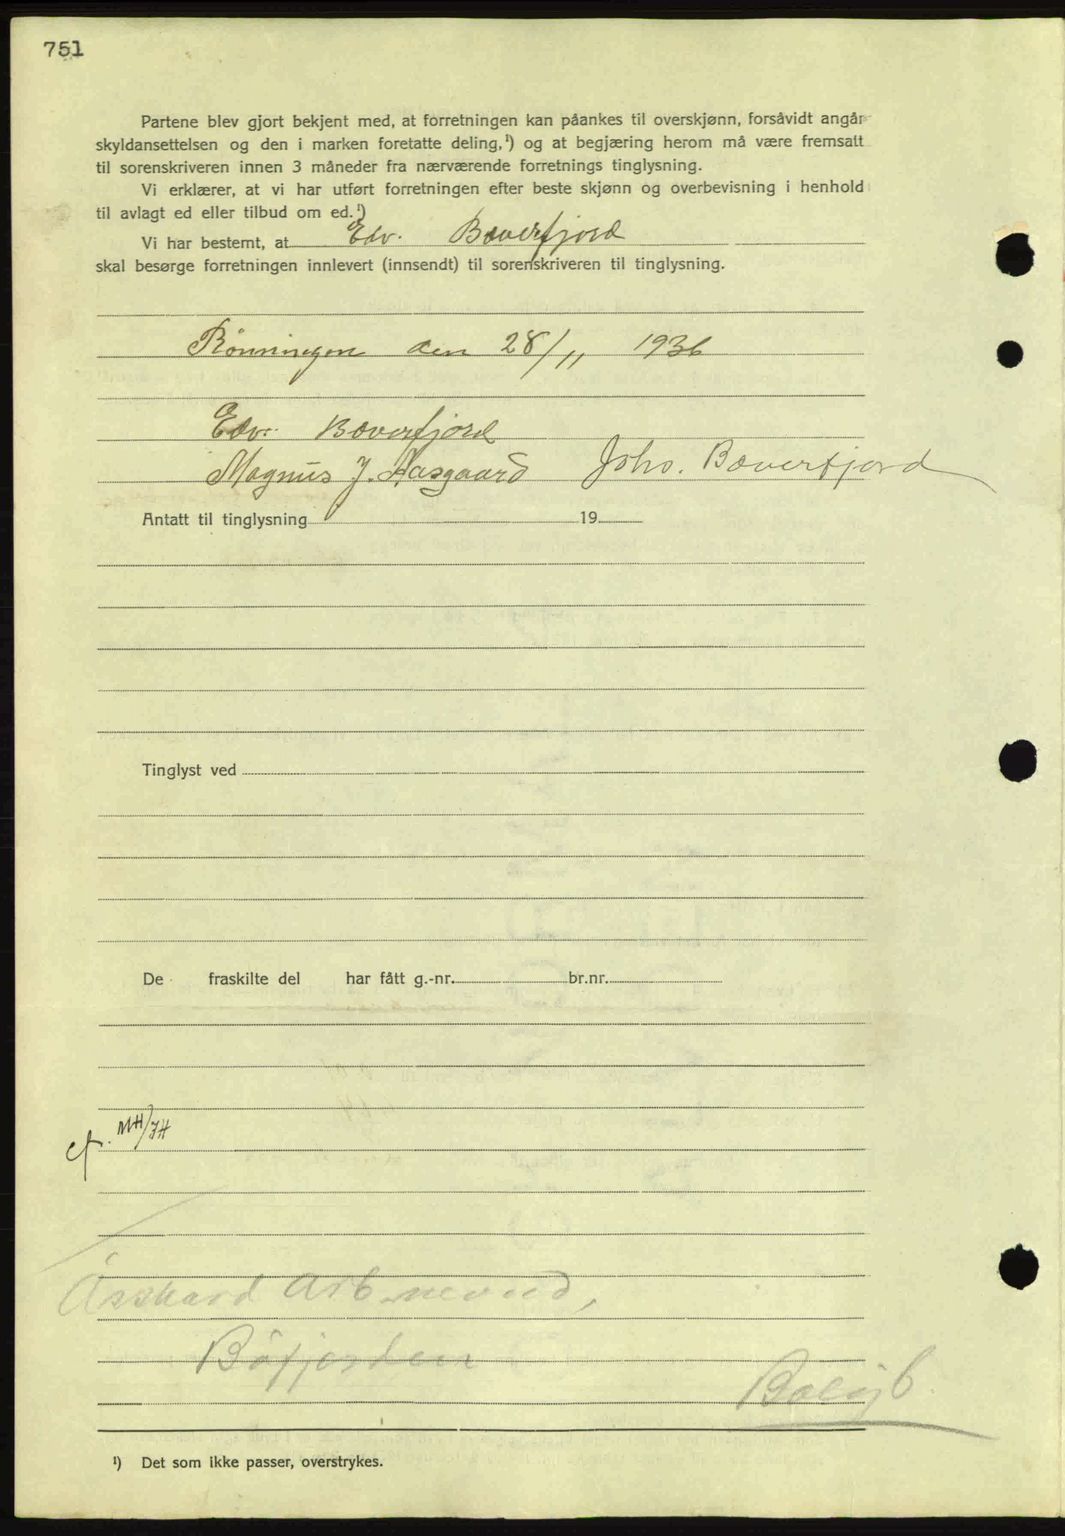 751
Partene blev gjort bekjent med, at forretningen kan påankes til overskjønn, forsåvidt angår
skyldansettelsen og den i marken foretatte deling,¹) og at begjæring herom må være fremsatt
til sorenskriveren innen 3 måneder fra nærværende forretnings tinglysning.
Vi erklærer, at vi har utført forretningen efter beste skjønn og overbevisning i henhold
til avlagt ed eller tilbud om ed.¹)
Vi har bestemt, at Edv. Bæverfjord
skal besørge forretningen innlevert (innsendt) til sorenskriveren til tinglysning.
Rønningen den 28/11 1936
Edv. Bæverfjord
Magnus J. Aasgaard Joho. Bæverfjord
Antatt til tinglysning 19
Tinglyst ved
De fraskilte del har fått g.-nr. br.nr.
cf. MH/JH
Åsskard Arb.nevnd,
Bøfjorden
¹) Det som ikke passer, overstrykes.